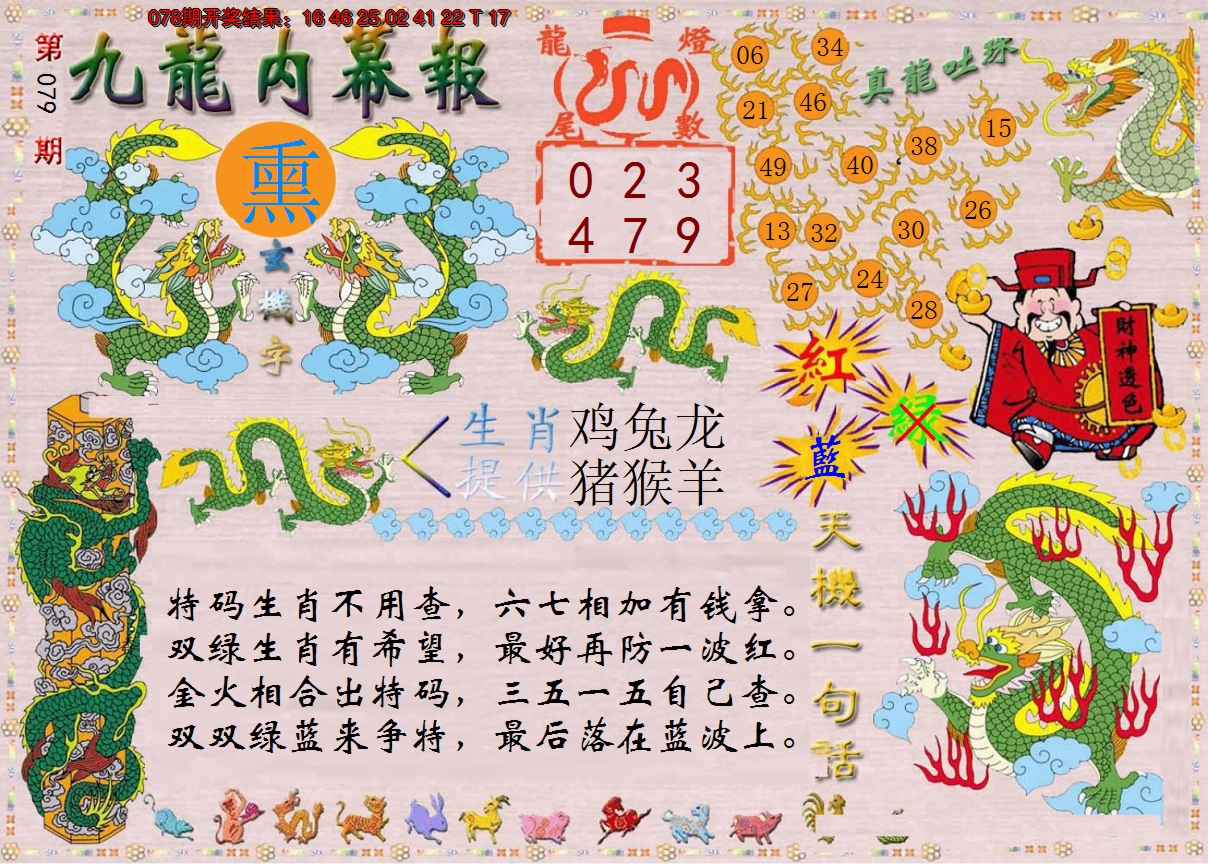 073期开奖结果：16 46 25 02 41 22 T 17
第079期
九龍内幕報
熏
玄機字
龍燈
尾數
0 2 3
4 7 9
真龍吐珠
06 34
21 46
49 40 38 15
13 32 30 26
27 24 28
財神透色
紅
绿
藍
生肖 鸡兔龙
提供 猪猴羊
天機一句話
特码生肖不用查，六七相加有钱拿。
双绿生肖有希望，最好再防一波红。
金火相合出特码，三五一五自己查。
双双绿蓝来争特，最后落在蓝波上。